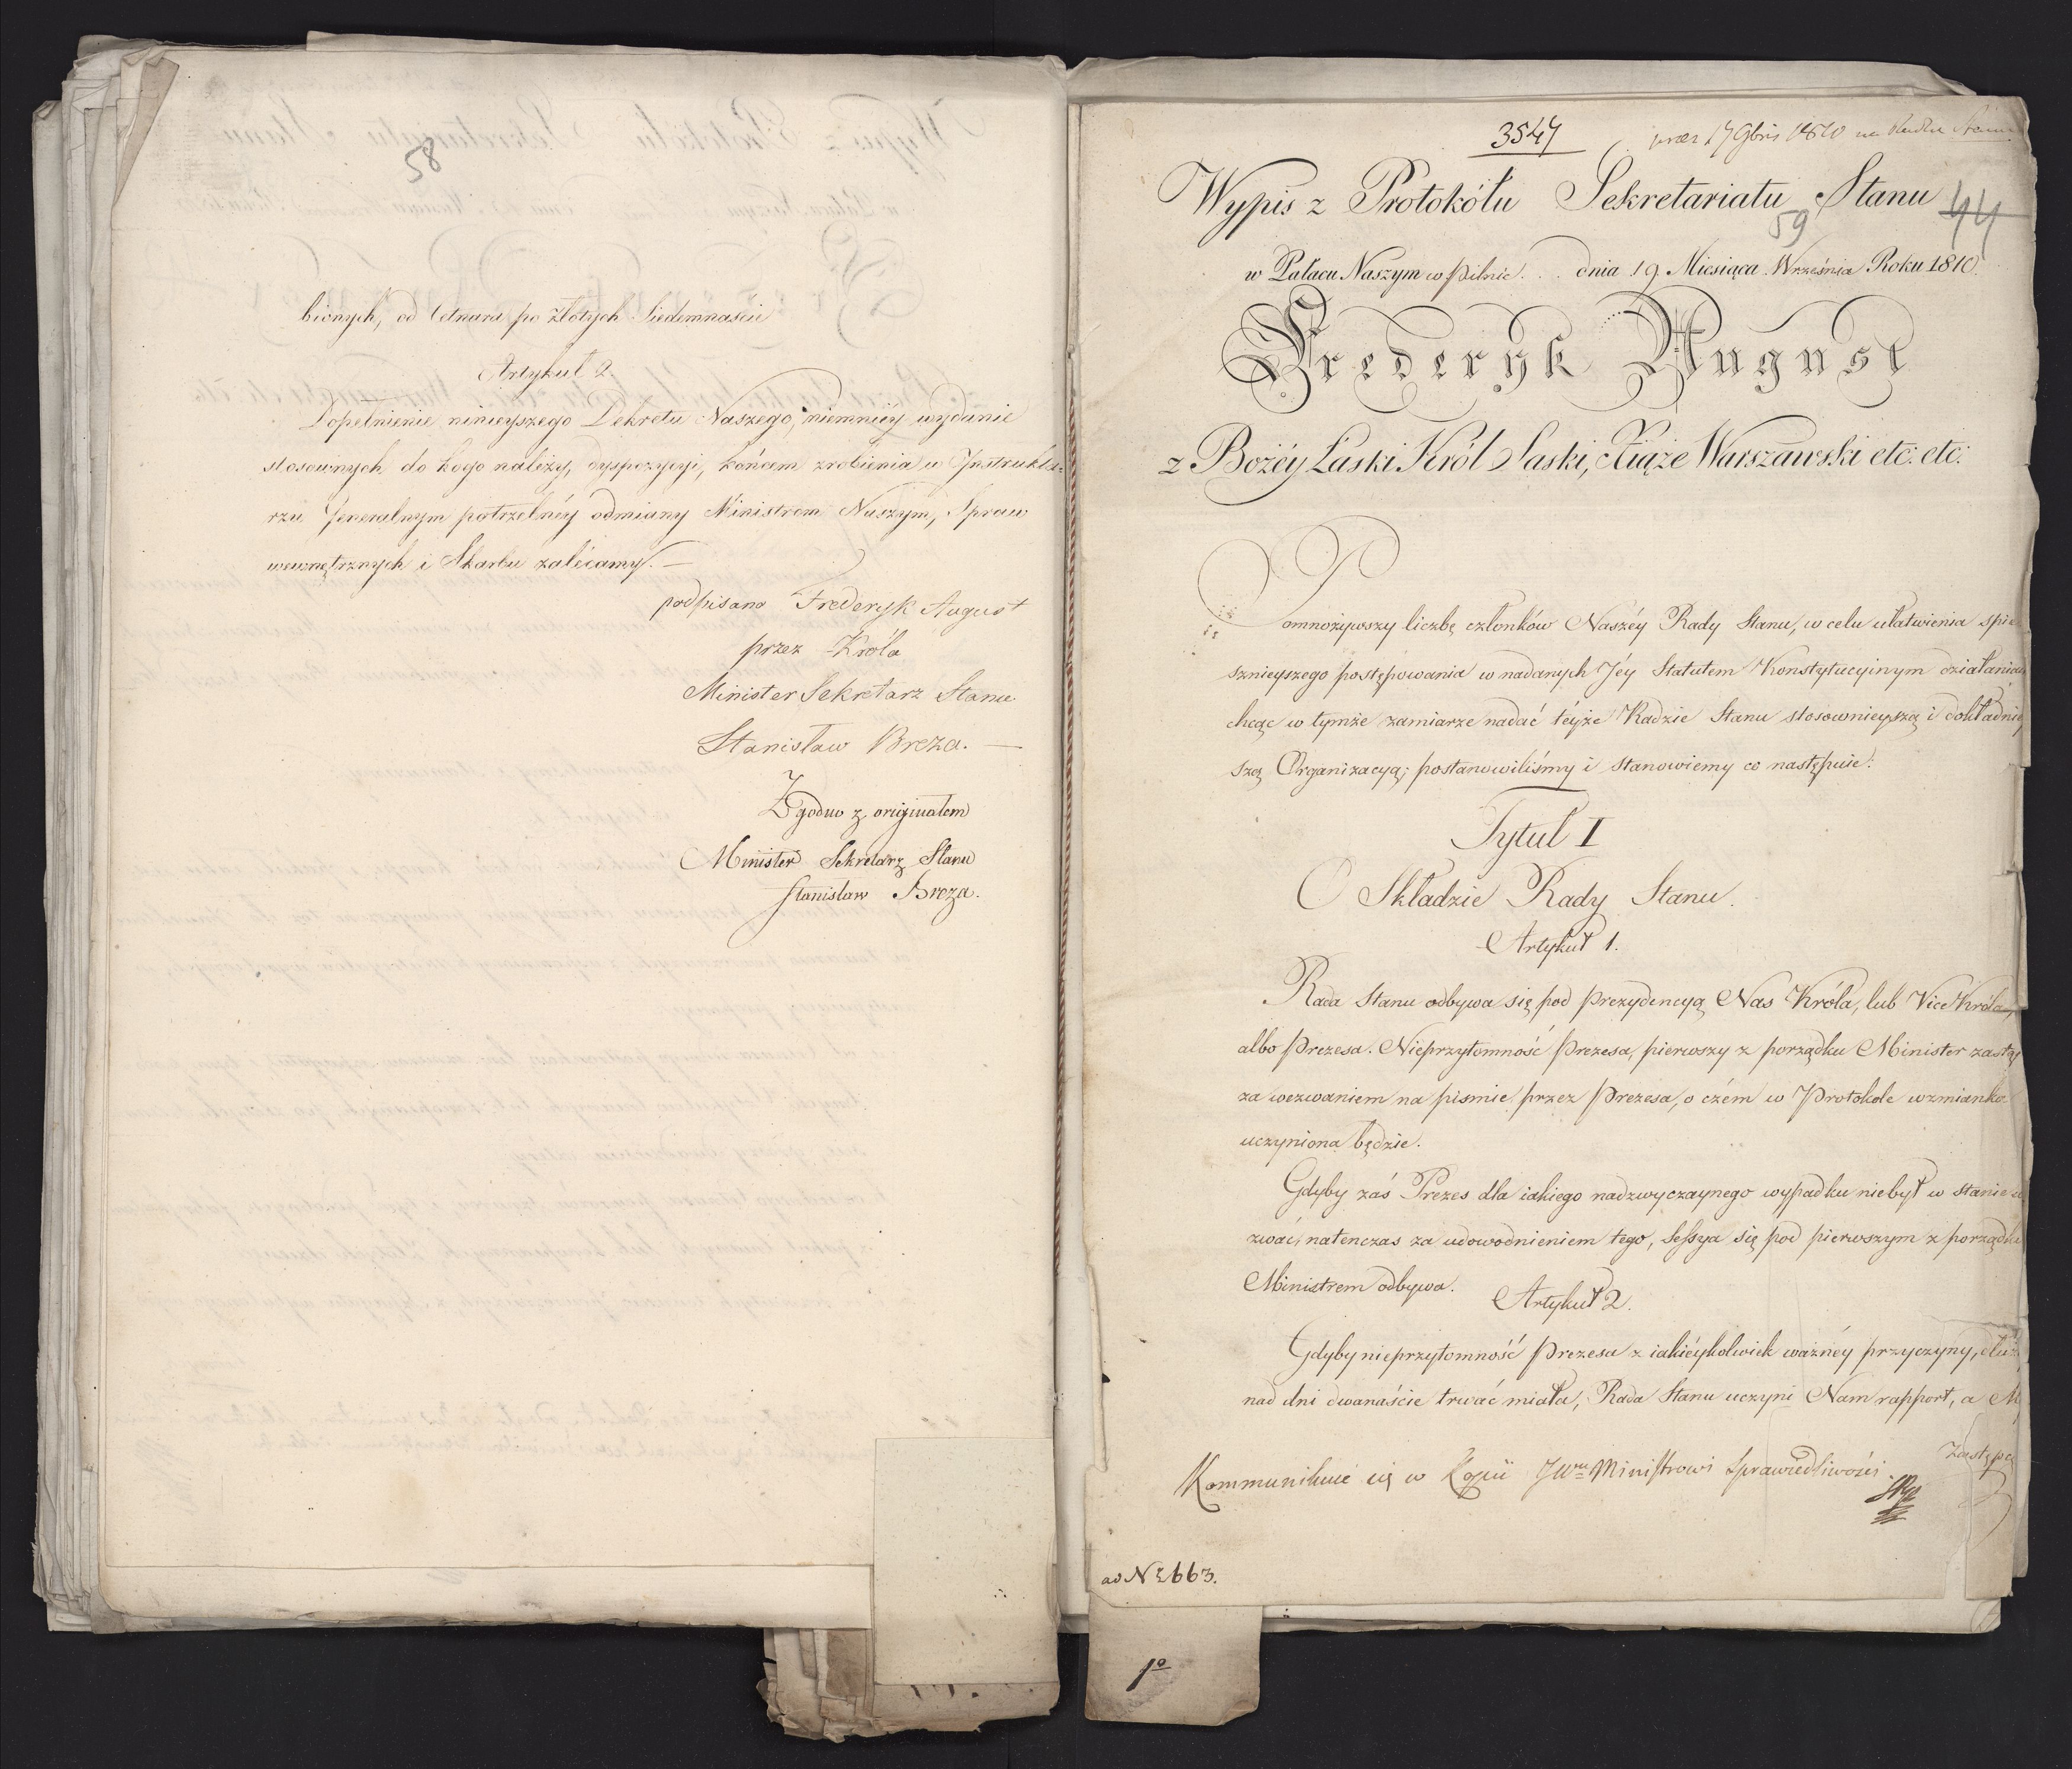 58
bionych, od Cetnara po złotych Siedemnaście
Artykuł 2.
Dopełnienie ninieyszego Dekretu Naszego, niemniéy wydanie
stosownych, do kogo należy, dyspozycyi, końcem zrobienia w Instrukta-
rzu Generalnym potrzebnéy odmiany Ministrom Naszym, Spraw
wewnętrznych i Skarbu zalécamy. —
podpisano Frederyk August
przez Króla
Minister Sekretarz Stanu
Stanisław Breza. —
Zgodno z originałem
Minister Sekretarz Stanu
Stanisław Breza.
3547
praes 17 9bris 1810 na Radzie Stanu
Wypis z Protokółu Sekretariatu Stanu
59 44
w Pałacu Naszym w Pilnic... dnia 19 Miesiąca Września Roku 1810.
Frederyk August
z Bożéy Łaski Król Saski, Xiąże Warszawski etc: etc:
Pomnożywszy liczbę członków Naszéy Rady Stanu, w celu ułatwienia spie
sznieyszego postępowania w nadanych Jéy Statutem Konstytucyinym działania
chcąc w tymże zamiarze nadać téyże Radzie Stanu stosownieyszą i dokładniey
szą Organizacyą; postanowiliśmy i stanowiemy co następuie:
Tytuł I
O Składzie Rady Stanu.
Artykuł 1.
Rada Stanu odbywa się pod Prezydencyą Nas Króla, lub Vice Króla,
albo Prezesa. Nieprzytomność Prezesa, pierwszy z porządku Minister zastą
za wezwaniem na pismie przez Prezesa, o czém w Protokole wzmianka
uczyniona będzie.
Gdyby zaś Prezes dla iakiego nadzwyczaynego wypadku niebył w stanie
zwać, natenczas za udowodnieniem tego, Sessya się pod pierwszym z porządku
Ministrem odbywa.
Artykuł 2.
Gdyby nieprzytomność Prezesa z iakiéykolwiek ważnéy przyczyny, dłuż
nad dni dwanaście trwać miała, Rada Stanu uczyni Nam rapport, a My
Zastępcę
Kommunikuie się w Kopii JWmu Ministrowi Sprawiedliwości.
ad N 2663.
1o